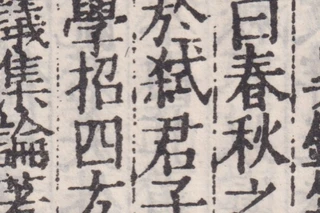 曰春秋之
於弑君子
學招四方
議集論著